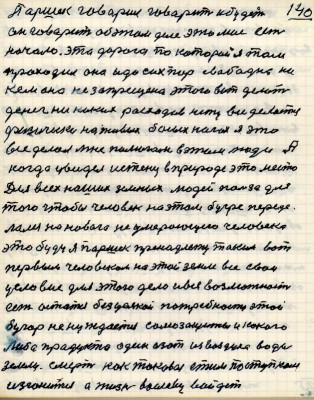 140
Паршек говарил говарит и будит
он говарить об этом деле это мне есть
начало. эта дорога по которой я там
проходил она и до сих пор свабодна ни
кем она не запрещена этого вот делать
денег ни каких расходов нету все делается
физически на живых больш ногой я это
все делал мне помогали в этом люди Я
когда увидел истену в природе это место
Для всех наших земных людей польза для
того чтобы человек на этом бугре переде
лался на новаго не умерающего человека
это буду я паршек принадлежу таким вот
первым человеком на этой земле все свои
условие для этого дело и все возможности
есть остатся без усякой потребности этой
бугор не нуждается самозащиты и какого
либа продукта один азот из воздуха вода
земля. смерть как таковая етим поступком
изгонится а жизнь восвецу войдет